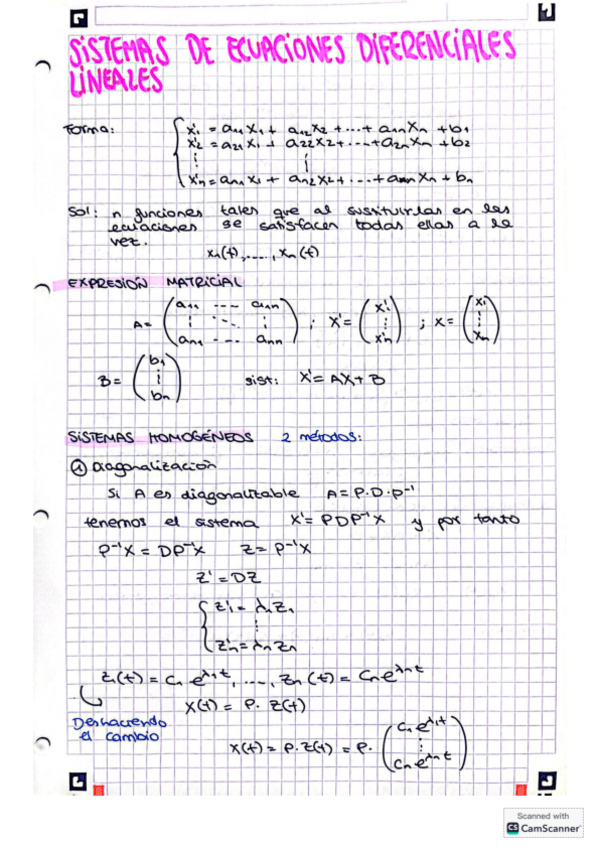 SISTEMAS DE ECUACIONES DIFERENCIALES
LINEALES
Forma: { x'₁ = a₁₁x₁ + a₁₂x₂ + ... + a₁ₙxₙ + b₁
x'₂ = a₂₁x₁ + a₂₂x₂ + ... + a₂ₙxₙ + b₂
⋮ ⋮
x'ₙ = aₙ₁x₁ + aₙ₂x₂ + ... + aₙₙxₙ + bₙ
Sol: n funciones tales que al sustituirlas en las
ecuaciones se satisfacen todas ellas a la
vez.
x₁(t), ...., xₙ(t)
EXPRESIÓN MATRICIAL
A = (a₁₁ ---- a₁ₙ ⋮ ⋱ ⋮ aₙ₁ --- aₙₙ) ; X' = (x'₁ ⋮ x'ₙ) ; X = (x₁ ⋮ xₙ)
B = (b₁ ⋮ bₙ) sist: X' = AX + B
SISTEMAS HOMOGÉNEOS 2 métodos:
① Diagonalización
Si A es diagonalizable A = P·D·P⁻¹
tenemos el sistema X' = PDP⁻¹X y por tanto
P⁻¹X = DP⁻¹X Z = P⁻¹X
Z' = DZ
{ z'₁ = λ₁z₁
⋮
z'ₙ = λₙzₙ
z₁(t) = c₁e^λ₁t, ...., zₙ(t) = cₙe^λₙt
X(t) = P. Z(t)
Deshaciendo
el cambio
X(t) = P.Z(t) = P. (c₁e^λ₁t ⋮ cₙe^λₙt)
Scanned with
CS CamScanner